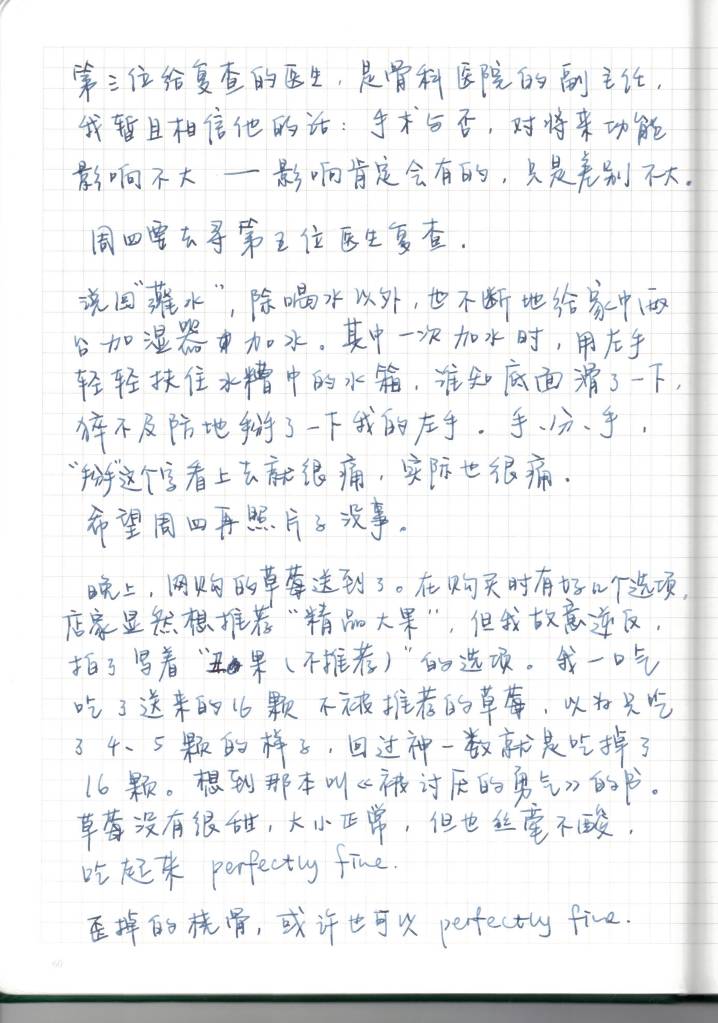 第三位给复查的医生，是骨科医院的副主任，
我暂且相信他的话：手术与否，对将来功能
影响不大 —— 影响肯定会有的，只是差别不大。
周四要去寻第五位医生复查．
说回“灌水”，除喝水以外，也不断地给家中两
台加湿器加水。其中一次加水时，用左手
轻轻扶住水槽中的水箱，谁知底面滑了一下，
猝不及防地掰了一下我的左手。手、分、手，
“掰”这个字看上去就很痛，实际也很痛．
希望周四再照片子没事。
晚上，网购的草莓送到了。在购买时有好几个选项，
店家显然想推荐“精品大果”，但我故意逆反，
拍了写着“果（不推荐）”的选项。我一口气
吃了送来的16颗不被推荐的草莓，以为只吃
了4、5颗的样子，回过神一数就是吃掉了
16颗。想到那本叫《被讨厌的勇气》的书。
草莓没有很甜，大小正常，但也丝毫不酸，
吃起来 perfectly fine.
歪掉的桡骨，或许也可以 perfectly fine.
60